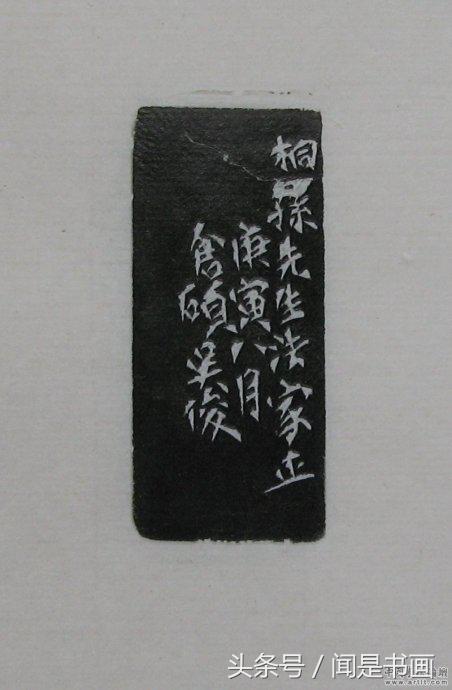 桐孫先生法家正
庚寅八月
倉碩吳俊
头条号 / 闻是书画
www.artlt.com